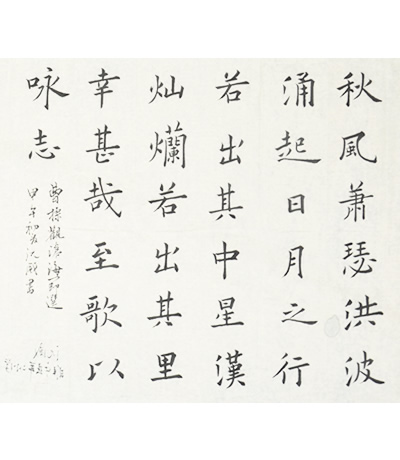 秋風蕭瑟洪波
涌起日月之行
若出其中星漢
灿爛若出其里
幸甚哉至歌以
咏志
曹操觀滄海
甲午初書